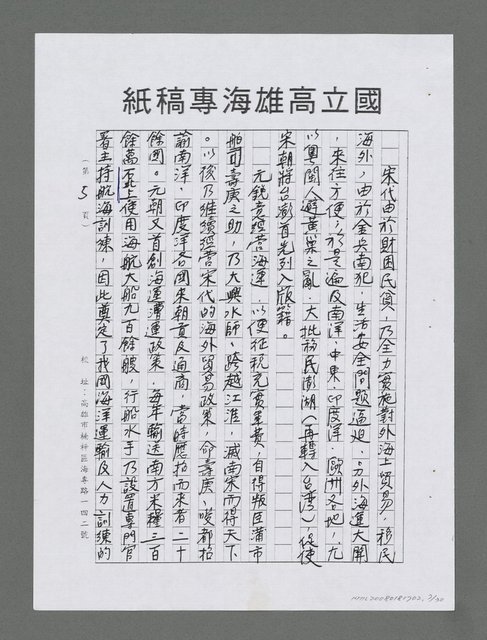 國立高雄海專稿紙
宋代由於財困民貧，乃全力實施對外海上貿易，移民
海外，由於金兵南犯，生活安全問題逼迫，另外海運大開
，來往方便，於是遍及南洋．中東．印度洋．歐洲各地，尤
以粵閩人避黃巢之亂．大批移民澎湖（再轉入台灣），促使
宋朝將台澎首先列入版籍。
元銳意經營海運，以便征稅充實軍費，自得叛臣蒲市
舶司壽庚之助，乃大興水師，跨越江淮，滅南宋而得天下
。以後乃繼續經營宋代的海外貿易政策，命壽庚、唆都招
諭南洋，印度洋各國來朝貢及通商，當時應招而來者二十
餘國。元朝又首創海運漕運政策，每年輸送南方米糧三百
餘萬石上使用海航大船九百餘艘，行船水手乃設置專門官
署主持航海訓練，因此奠定了我國海洋運輸及人力訓練的
（第 5 頁）
校址：高雄市楠梓區海專路一四二號
NMTL20080181702, 7/30